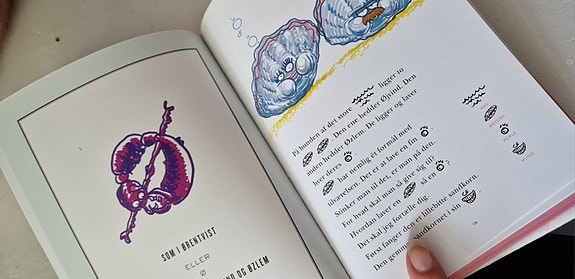 SOM I BRENTVIST
ELLER
Ø
ND OG ØZLEM
På bunden af det store ligger to
. Den ene hedder Øjvind. Den
anden hedder Øzlem. De ligger og laver
hver deres .
har nemlig ét formål med
tilværelsen. Det er at lave en fin .
Synker man til det, er man på den.
For hvad skal man så give sig til?
Hvordan laver en så en ?
Det skal jeg fortælle dig.
Først fanger den et lillebitte sandkorn.
Den gemmer sandkornet i sin .